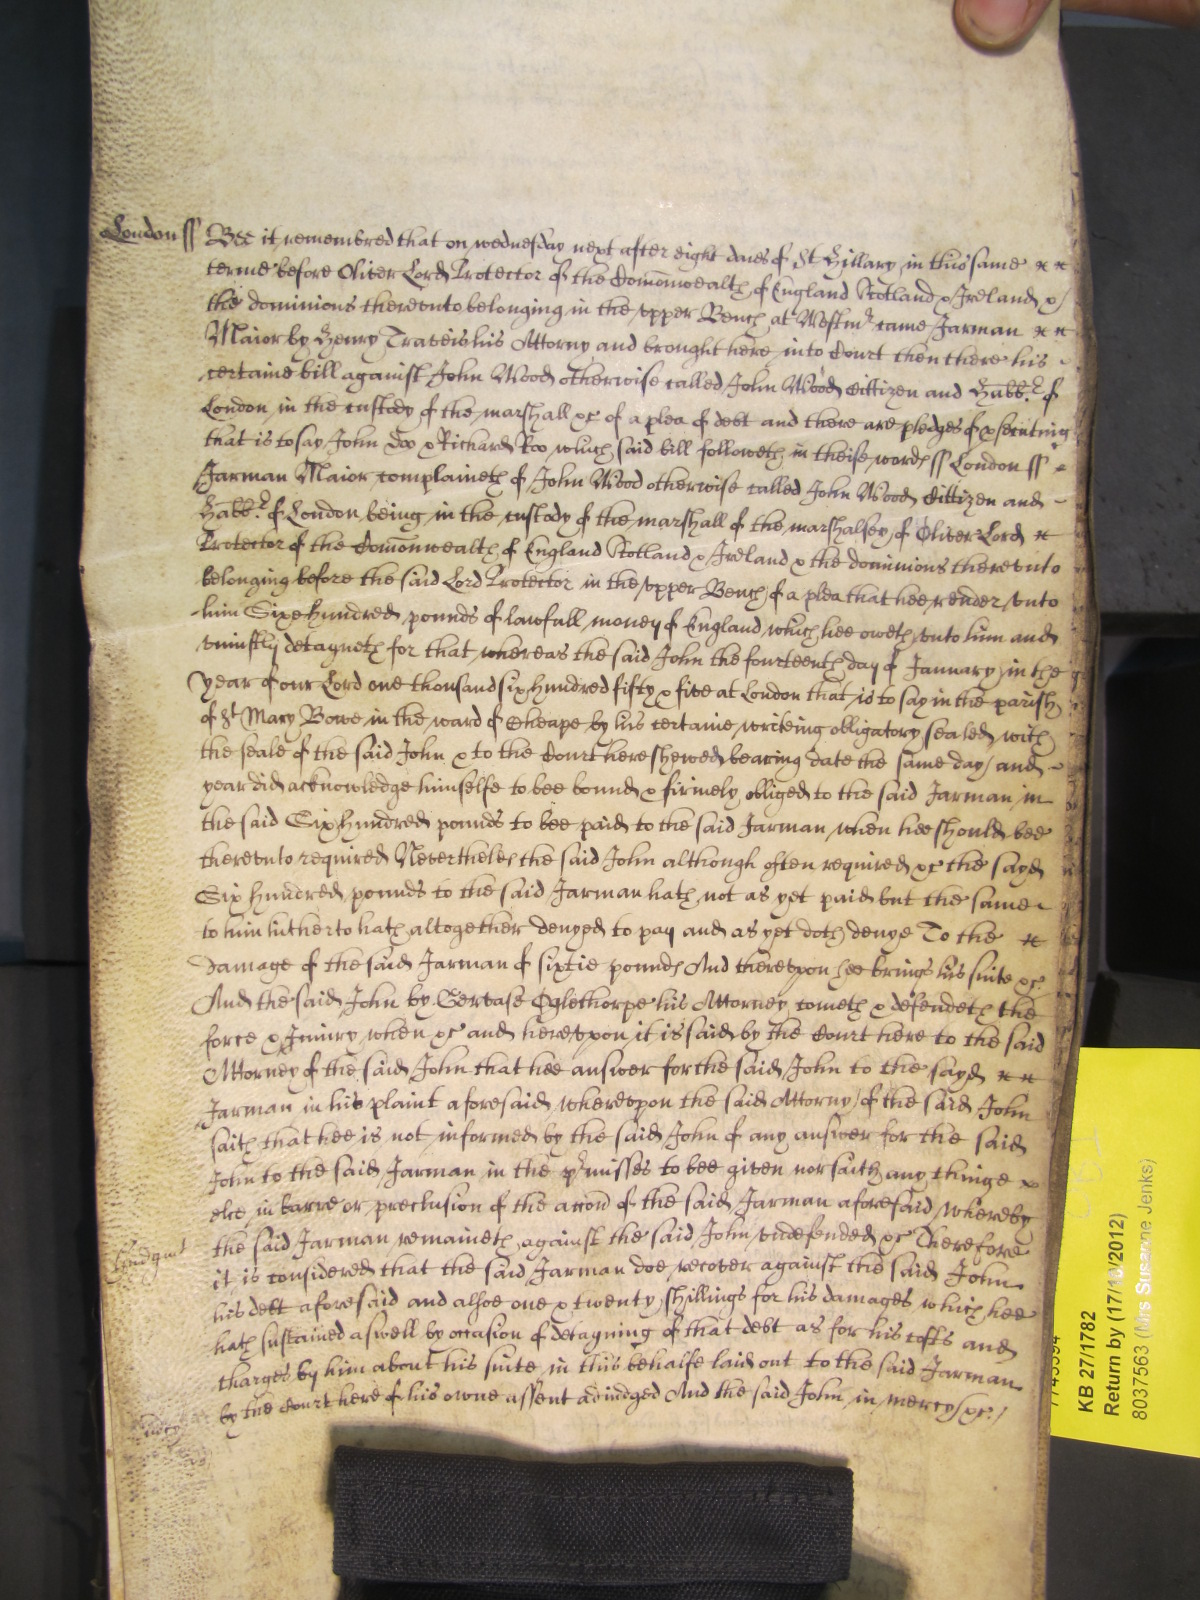 London ss Bee it remembred that on wednesday next after eight daies of St Hillary in this same
terme before Oliver Lord Protector of the Comonwealth of England Scotland & Ireland &
the dominions therevnto belonging in the vpper Bench at Westmr came Jarman
Maior by Henry Traveis his Attorny and brought here into Court then there his
certaine bill against John Wood otherwise called John Wood Cittizen and Habb.r of
London in the custody of the marshall &c of a plea of debt and there are pledges of &secuting
that is to say John Doo & Richard Roo which said bill followeth in theise words ss London ss
Jarman Maior complaineth of John Wood otherwise called John Wood Cittizen and
Habb.r of London being in the custody of the marshall of the marshalsey of Oliver Lord
Protector of the Comonwealth of England Scotland & Ireland & the dominions therevnto
belonging before the said Lord Protector in the vpper Bench of a plea that hee render vnto
him Sixe hundred pounds of lawfull money of England which hee oweth vnto him and
vniustly detayneth for that whereas the said John the fourteenth day of January in the
year of our Lord one thousand six hundred fifty & five at London that is to say in the parish
of St Mary Bowe in the ward of Cheape by his certaine writeing obligatory sealed with
the seale of the said John & to the Court here shewed bearing date the same day and
year did acknowledge himselfe to bee bound & firmely obliged to the said Jarman in
the said Six hundred pounds to bee paid to the said Jarman when hee should bee
therevnto required Neverthelesse the said John although often required &c the sayd
Six hundred pounds to the said Jarman hath not as yet paid but the same
to him hitherto hath altogether denyed to pay and as yet doth denye To the
damage of the said Jarman of sixtie pounds And therevpon hee brings his suite &c
And the said John by Gervase Oglethorpe his Attorney cometh & defendeth the
force & Iniury when &c and herevpon it is said by the Court here to the said
Attorney of the said John that hee answer for the said John to the sayd
Jarman in his plaint aforesaid wherevpon the said Attorny of the said John
saith that hee is not informed by the said John of any answer for the said
John to the said Jarman in the pr misses to bee given nor saith any thinge
else in barre or preclusion of the accon of the said Jarman aforesaid whereby
the said Jarman remaineth against the said John vndefended &c Therefore
Iudgmt it is considered that the said Jarman doe recover against the said John
his debt aforesaid and alsoe one & twenty shillings for his damages which hee
hath sustained aswell by occasion of detayning of that debt as for his costs and
charges by him about his suite in this behalfe laid out to the said Jarman
by the Court here of his owne assent adiudged And the said John in mercy &c
mercy
KB 27/1782
Return by (17/10/2012)
8037563 (Mrs Susanne Jenks)